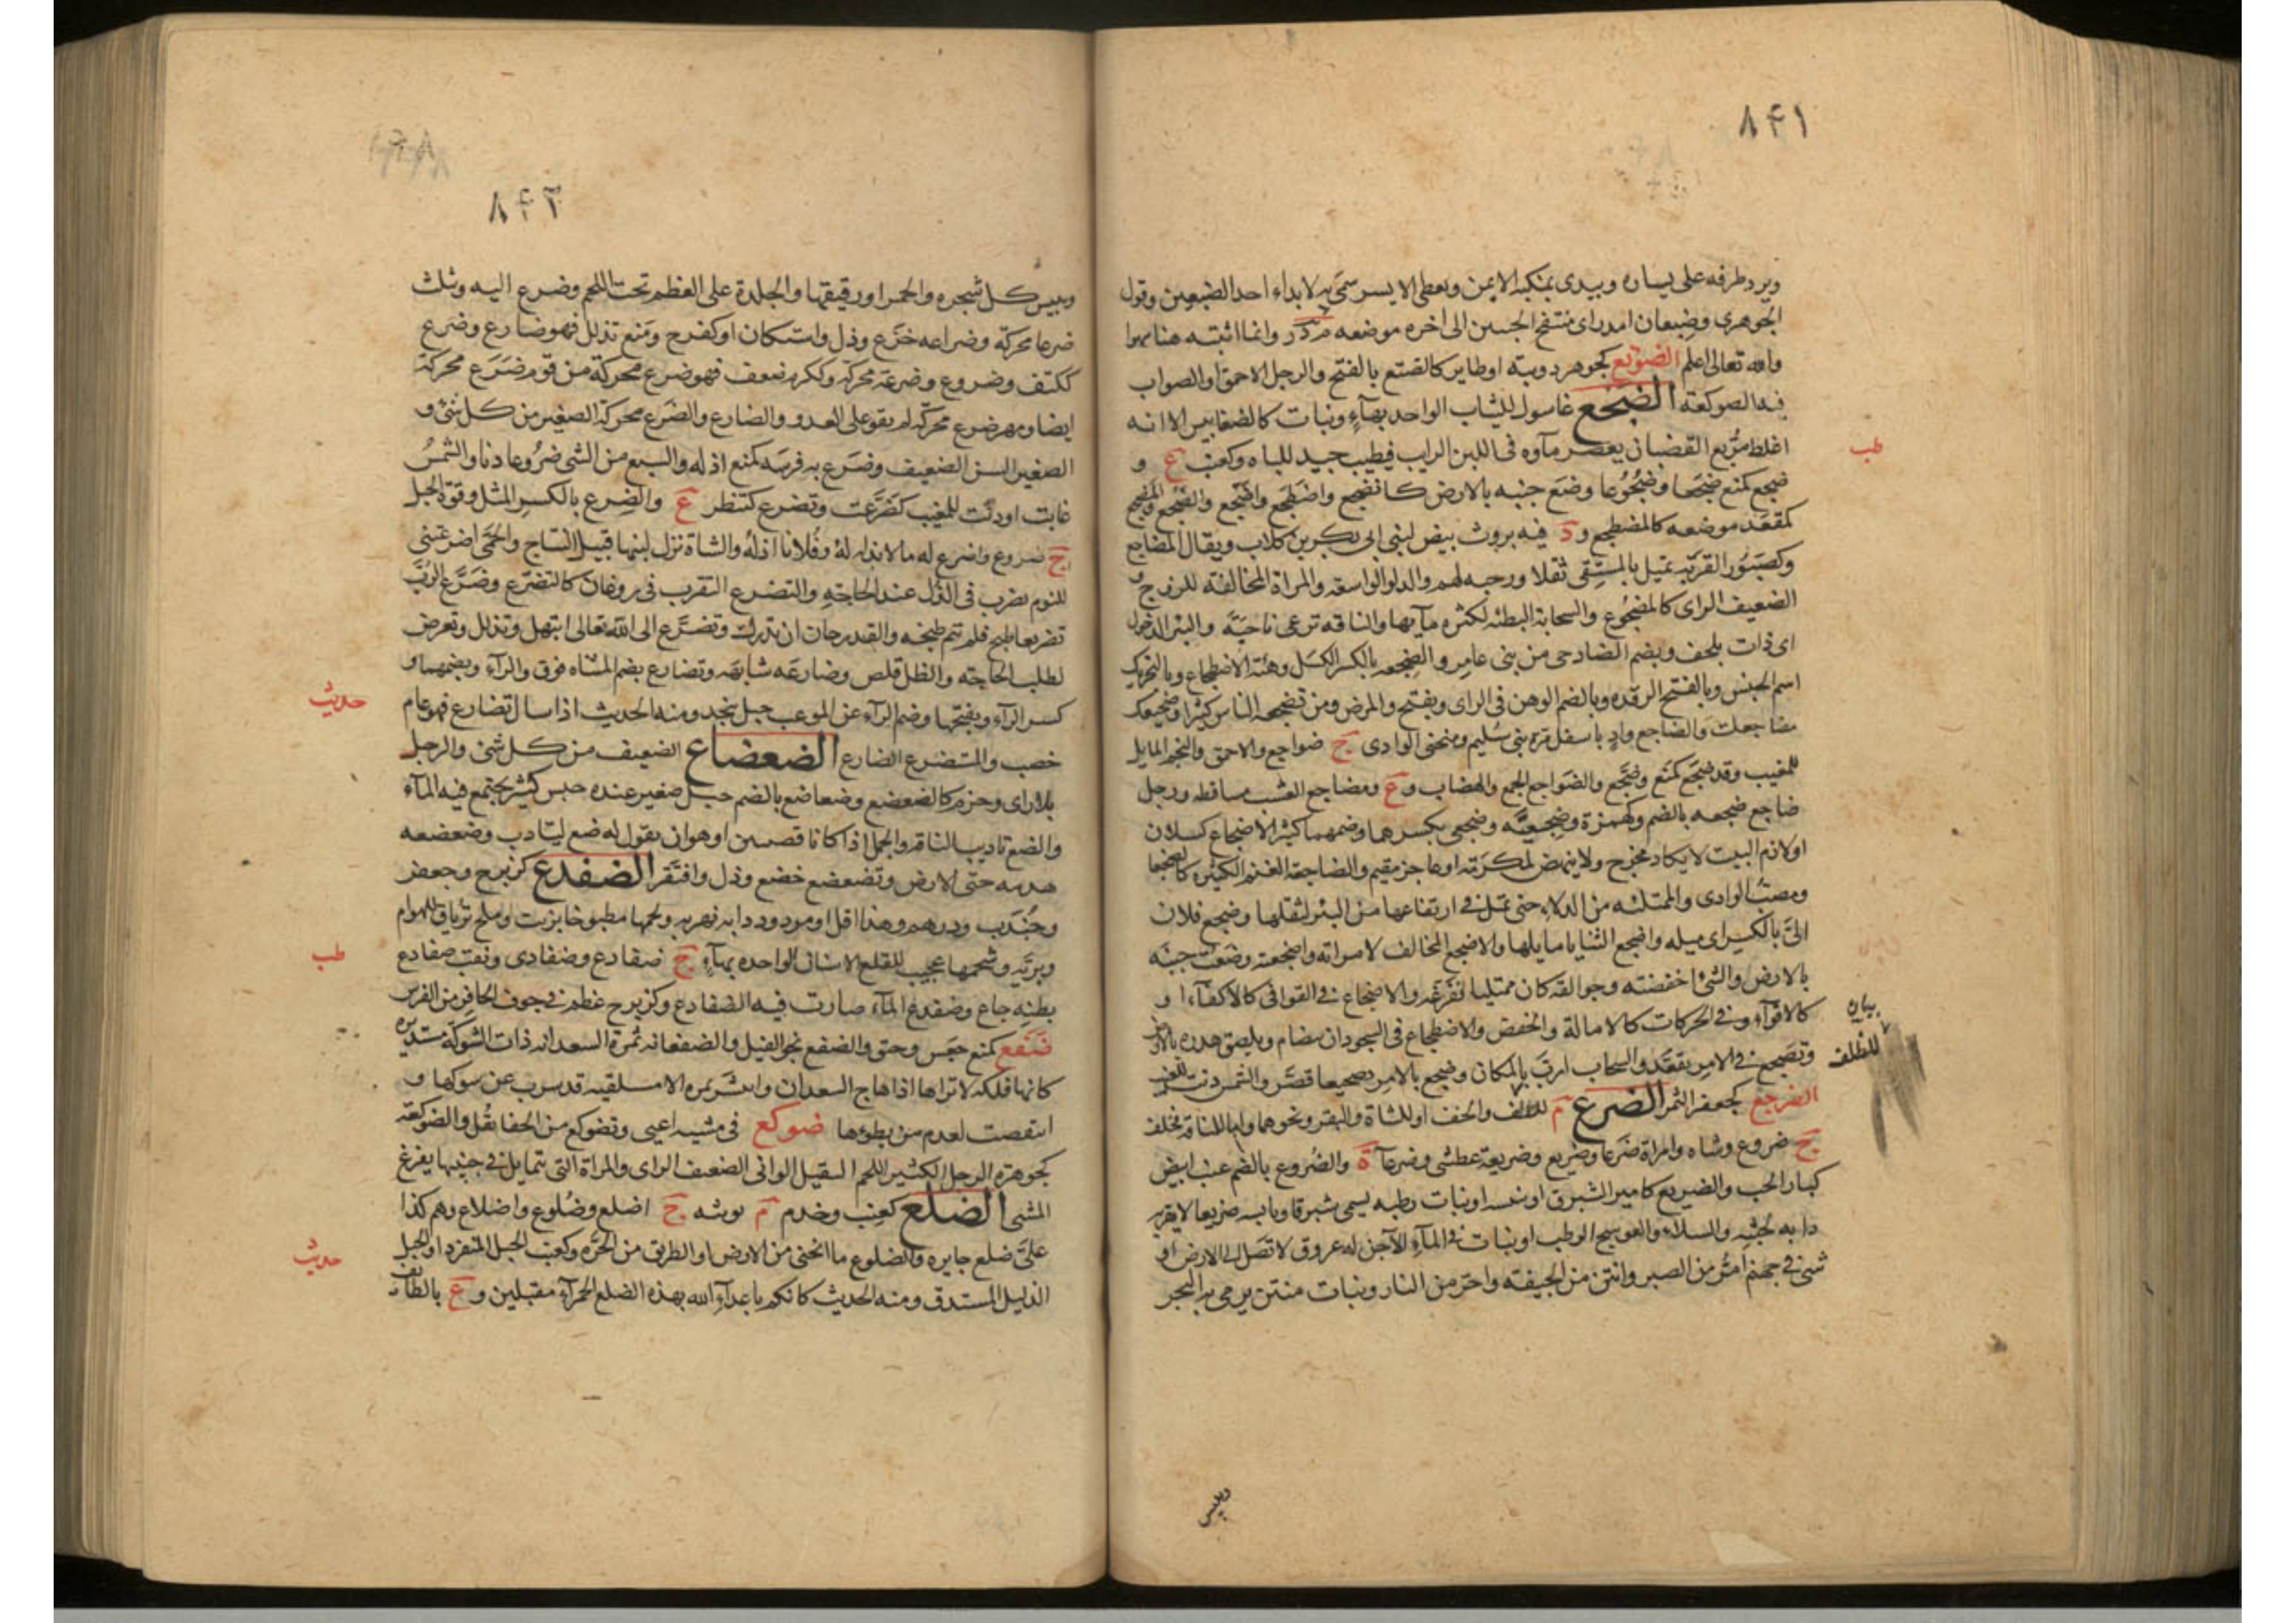 ٨٤١
ويرد طرفه على يساره ويبدى بمنكبه الايمن ويعطى الايسر سمى به لابداء احد الضبعين وقول
الجوهرى وضبعان امدر اى منتفخ الجنبين الى اخره موضعه م د ر وانما اثبته هنا سهوا
والله تعالى اعلم الضوتع كجوهر دويبة او طاير كالضتع بالفتح والرجل الاحمق او الصواب
فيه الصوكعة الضجع غاسول للثياب الواحد بهآءٍ ونبات كالضغابيس الا انه
اغلظ مربع القضبان يعصر مآوه فى اللبن الرايب فيطيب جيد للباه وكعنب ع و
طب
ضجع كمنع ضجعا وضجوعا وضع جنبه بالارض كانضجع واضطجع واضجع والضجع
كمقعد موضعه كالمضطجع و د فيه بروث بيض لبنى ابى بكر بن كلاب ويقال المضاجع
وكصبور القربة تميل بالمستقى ثقلا ورحبه لهم والدلو الواسعة والمراة المخالفة للزوج و
الضعيف الراى كالمضجوع والسحابة البطيئه لكثره مآيها والناقه ترعى ناحية والبئر الدخول
اى ذات بلجف وبضم الضاد حى من بنى عامر والضجعه بالكسر الكسل وهئة الاضطجاع وبالتحريك
اسم الجنس وبالفتح الرقده وبالضم الوهن فى الراى ويفتح والمرض ومن تضجعه الناس كثيرا وضجيعك
مضاجعك والضاجع وادٍ باسفل حرة بنى سليم ومنحنى الوادى ج ضواجع والاحمق والنجم المايل
للمغيب وقد ضجع كمنع وضجع والضواجع الجمع والهضاب و ع ومضاجع الغيث مساقطه ورجل
ضاجع ضجعه بالضم وكهمزة وضجعية وضجعى بكسرهما وضمهما كثير الاضجاع كسلان
او لازم البيت لايكاد يخرج ولا ينهض لمكرمة او عاجز مقيم والضاجعة الغنم الكثيره كالضجعا
ومصب الوادى والممتلئه من الدلاء حتى تميل فى ارتفاعها من البئر لثقلها وضجع فلان
الىّ بالكسر اى ميله واضجع الثنايا مايلها والاضجع المخالف لامراته واضجعته وضعت جنبه
بالارض والشئ اخفضته وجوالقه كان ممتليا ففرغه والاضجاع فى القوافى كالاكفآء او
كالاقوآء وفى الحركات كالامالة والخفض والاضطجاع فى السجود ان يتضام ويلصق صدره بالارض
بيان
للظلف
وتضجع فى الامر تقعد والسحاب ارب بالمكان وضجع بالامر تضجيعا قصر والشمس دنت للمغيب
الضرجع كجعفر النمر الضرع م للظلف والخف او للشاة والبقر ونحوهما واما للناقة فخلف
ج ضروع وشاه وامراة ضرعا وضريع وضريعة عظمتى وضرعآء ة والضروع بالضم عنب ابيض
كبار الحب والضريع كامير الشبرق او يبسه او نبات رطبه يسمى شبرقا ويابسه ضريعا لايقربه
دابه لخبثه والسلاء والعوسج الرطب او نبات فى المآءِ الآجن له عروق لا تصل الى الارض او
شئ فى جهنم امر من الصبر وانتن من الجيفة واحر من النار ونبات منتن يرمى به البحر
ويبيس
٨٤٢
ويبيس كل شجره والخمر او رقيقها والجلدة على العظم تحت اللحم وضرع اليه ويثلث
ضرعا محركة وضراعه خضع وذل واستكان او كفرح ومنع تذلل فهو ضارع وضرع
ككتف وضروع وضرعة محركة وككرم ضعف فهو ضرع محركة من قوم ضرع محركة
ايضا ومهر ضرع محركة لم يقو على العدو والضارع والضرع محركة الصغير من كل شئ و
الصغير السن الضعيف وضرع به فرسه كمنع اذله والسبع من الشئ ضروعا دنا والشمس
غابت او دنت للمغيب كضرعت وتضرع كتنظر ع والضرع بالكسر المثل وقوة الحبل
ج ضروع واضرع له مالا بذله له وفلانا اذله والشاة نزل لبنها قبيل النتاج والحمى اضرعتنى
للنوم يضرب فى الذل عند الحاجة والتضرع التقرب فى روغان كالتضرع وضرع الرب
تضريعا طبخ فلم يتم طبخه والقدر حان ان تدرك وتضرع الى الله تعالى ابتهل وتذلل وتعرض
لطلب الحاجته والظل قلص وضارعه شابهه وتضارع بضم المثناه فوق والرآء وبضمهما و
كسر الرآء وبفتحها وضم الرآء عن الموعب جبل بنجد ومنه الحديث اذا سال تضارع فهو عام
حديث
خصب والمستضرع الضارع الضعضاع الضعيف من كل شئ والرجل
بلا راى وحزم كالضعضع وضعاضع بالضم جبل صغير عنده حبس كثير يجتمع فيه المآء
والضع تاديب الناقة والجمل اذا كانا قضيبين او هو ان يقول له ضع ليتادب وضعضعه
هدمه حتى الارض وتضعضع خضع وذل وافتقر الضفدع كزبرج وجعفر
وجندب ودرهم وهذا اقل او مردود دابه نهريه ولحمها مطبوخا بزيت وملح ترياق للهوام
وبريه وشحمها عجيب لقلع الاسنان الواحده بهآءٍ ج ضفادع وضفادى ونقت ضفادع
طب
بطنه جاع وضفدع المآء صارت فيه الضفادع وكزبرج عظم فى جوف الحافر من الفرس
ضفع كمنع جعس وحتى والضفع نجو الفيل والضفعانه ثمرة السعدانه ذات الشوكة مستديره
كانها فلكه لاتراها اذا هاج السعدان وانتثر ثمره الا مسلنقيه قد كشرت عن شوكها و
انتصبت لقدم من يطوها ضوكع فى مشيه اعيى وتضوكع من الحفا ثقل والضوكعة
كجوهرة الرجل الكثير اللحم الثقيل الوانى الضعيف الراى والمراة التى تتمايل فى جنبيها يفرغ
المشى الضلع كعنب وجذم م مونثه ج اضلع وضلوع واضلاع وهم كذا
على ضلع جايره والضلوع ما انحنى من الارض او الطريق من الحره وكعنب الجبل المنفرد او الجبل
حديث
الذليل المستدق ومنه الحديث كانكم يا اعدآء الله بهذه الضلع الحمرآء مقبلين و ع بالطائف